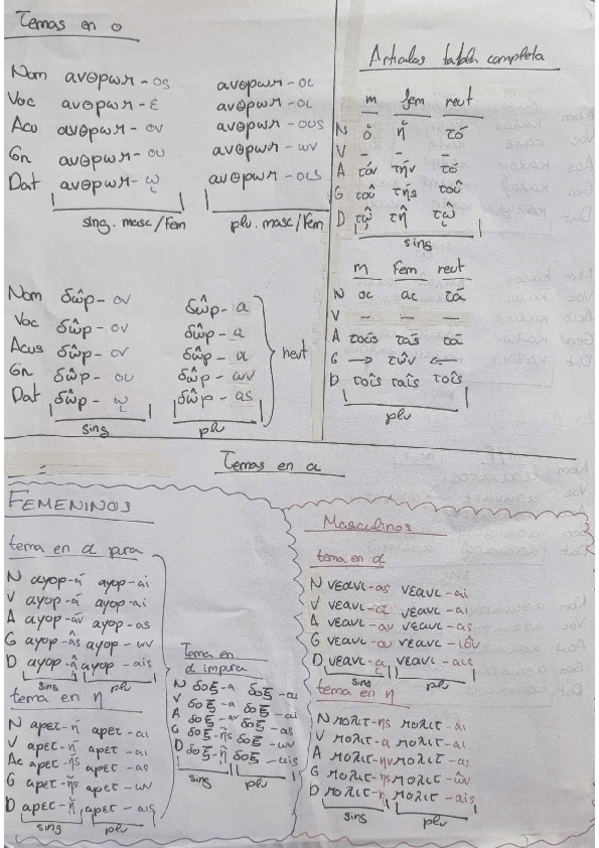 Temas en o
Nom ανθρωπ-os ανθρωπ-οι
Voc ανθρωπ-ε ανθρωπ-οι
Acu ανθρωπ-ον ανθρωπ-ους
Gn ανθρωπ-ου ανθρωπ-ων
Dat ανθρωπ-ῳ ανθρωπ-οις
sing. masc/Fem plu. masc/Fem
Nom δῶρ-ον δῶρ-α
Voc δῶρ-ον δῶρ-α
Acus δῶρ-ον δῶρ-α
Gn δῶρ-ου δῶρ-ων
Dat δῶρ-ῳ δῶρ-as
neut
sing plu
Artículos tabla completa
m fem neut
N ὁ ἡ τό
V – – –
A τόν τήν τό
G τοῦ τῆς τοῦ
D τῷ τῇ τῷ
sing
m Fem neut
N οι αι τά
V – – –
A τούς τάς τά
G → τῶν ←
D τοῖς ταῖς τοῖς
plu
Temas en α
FEMENINOS
tema en α pura
N αγορ-ά αγορ-αi
V αγορ-ά αγορ-αi
A αγορ-άν αγορ-ας
G αγορ-ᾶς αγορ-ων
D αγορ-ᾷ αγορ-αις
sing plu
tema en η
N αρετ-ή αρετ-αι
V αρετ-ή αρετ-αι
Ac αρετ-ήν αρετ-ας
G αρετ-ῆς αρετ-ων
D αρετ-ῇ αρετ-αις
sing plu
Tema en
α impura
N δοξ-α δοξ-αι
V δοξ-α δοξ-αι
A δοξ-αν δοξ-ας
G δοξ-ης δοξ-ων
D δοξ-ῃ δοξ-αις
sing plu
Masculinos
tema en α
N νεανι-ας νεανι-αi
V νεανι-α νεανι-αi
A νεανι-αν νεανι-ας
G νεανι-ου νεανι-ιῶν
D νεανι-α νεανι-αις
sing plu
tema en η
N πολιτ-ης πολιτ-αι
V πολιτ-α πολιτ-αι
A πολιτ-ην πολιτ-ας
G πολιτ-ης πολιτ-ῶν
D πολιτ-η πολιτ-αις
sing plu